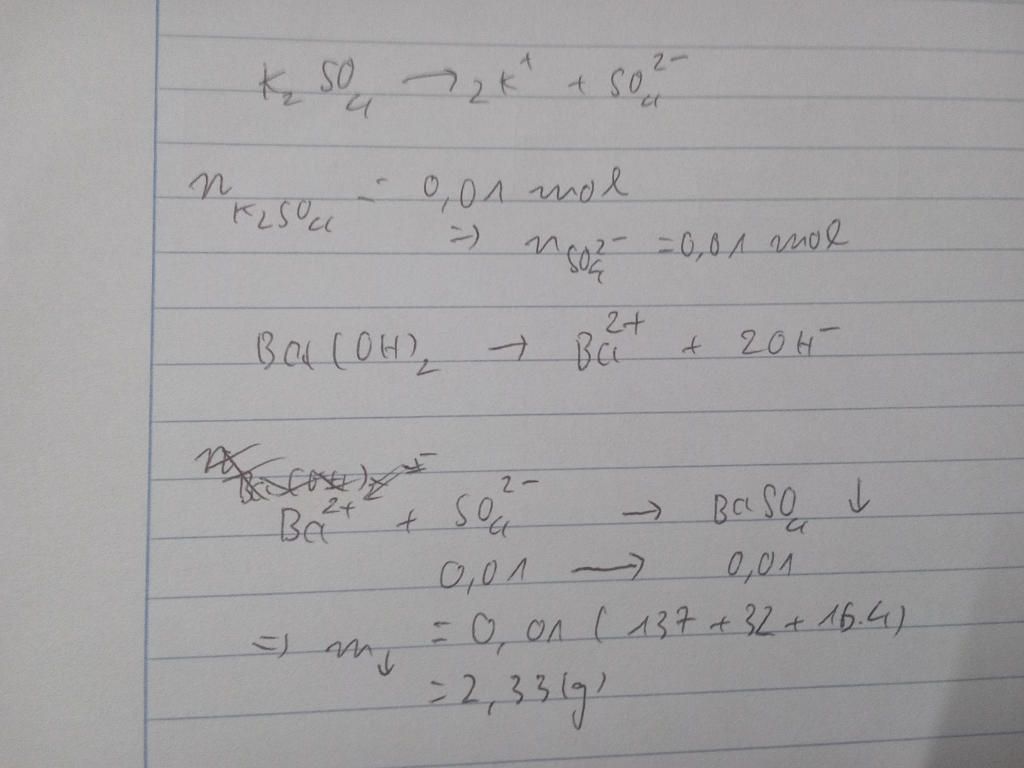 K₂SO₄ → 2K⁺ + SO₄²⁻
n K₂SO₄ = 0,01 mol
⇒ n SO₄²⁻ = 0,01 mol
Ba(OH)₂ → Ba²⁺ + 2OH⁻
Ba²⁺ + SO₄²⁻ → BaSO₄ ↓
0,01 → 0,01
⇒ m↓ = 0,01 (137 + 32 + 16.4)
= 2,33 (g)